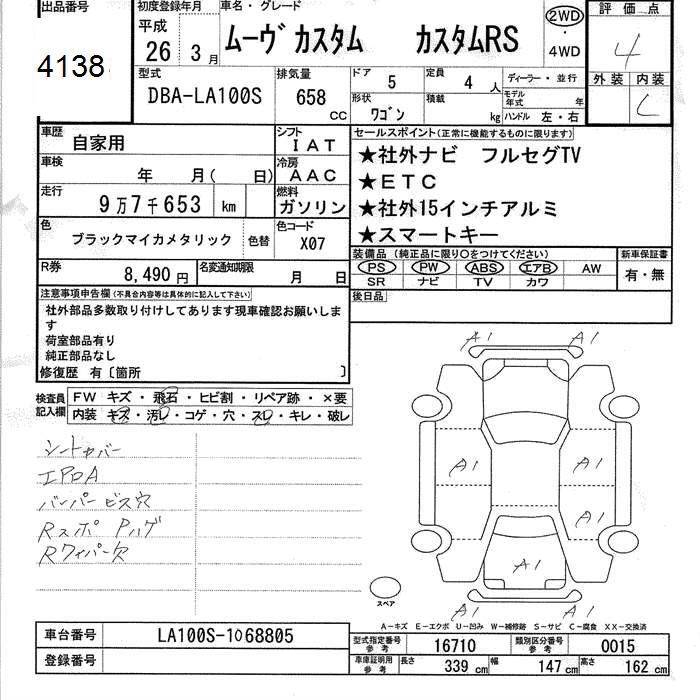 出品番号
4138
初度登録年月
平成
26 3月
車名・グレード
ムーヴ カスタム カスタムRS
2WD
・
4WD
評価点
4
外装 内装
C
型式
DBA-LA100S
排気量
658 CC
ドア
5
定員
4 人
形状
ワゴン
積載
kg
ディーラー・並行
モデル年式 年
ハンドル 左・右
車歴
自家用
シフト
IAT
車検
年 月( 日)
冷房
AAC
走行
9万7千653 km
燃料
ガソリン
色
ブラックマイカメタリック
色替
色コード
X07
R券
8,490円
名変通知期限
月 日
セールスポイント(正常に機能するものに限ります)
★社外ナビ フルセグTV
★ETC
★社外15インチアルミ
★スマートキー
装備品 (純正品に限り○をつけてください)
PS PW ABS エアB AW
SR ナビ TV カワ
新車保証書
有・無
後日品
注意事項申告欄(不具合内容等は具体的に記入して下さい)
社外部品多数取り付けしてあります現車確認お願いしま
す
荷室部品有り
純正部品なし
修復歴 有〔箇所 〕
検査員
記入欄
FW キズ・飛石・ヒビ割・リペア跡・×要
内装 キズ・汚レ・コゲ・穴・スレ・キレ・破レ
シートカバー
エアロA
バンパービス穴
Rスポ Pハゲ
Rワイパー欠
A1 A1
A1 A1
A1
A1
A1 A1
スペア
A-キズ E-エクボ U-凹み W-補修跡 S-サビ C-腐食 XX-交換済
車台番号
LA100S-1068805
登録番号
型式指定番号
参考
16710
類別区分番号
参考
0015
車庫証明用
参考
長さ 339 cm 幅 147 cm 高さ 162 cm